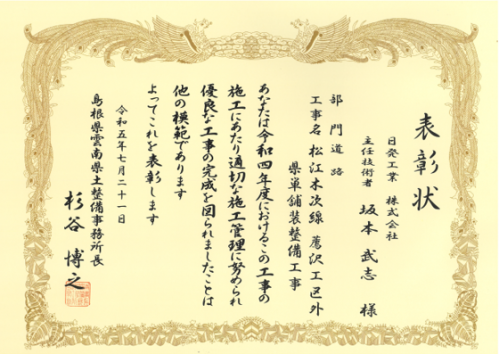 表彰状
日発工業 株式会社
主任技術者 坂本 武志 様
部門 道路
工事名 松江木次線 薦沢工区外
県単舗装整備工事
あなたは令和四年度におけるこの工事の
施工にあたり適切な施工管理に努められ
優良な工事の完成を図られましたことは
他の模範であります
よってこれを表彰します
令和五年七月二十一日
島根県雲南県土整備事務所長
杉谷 博之